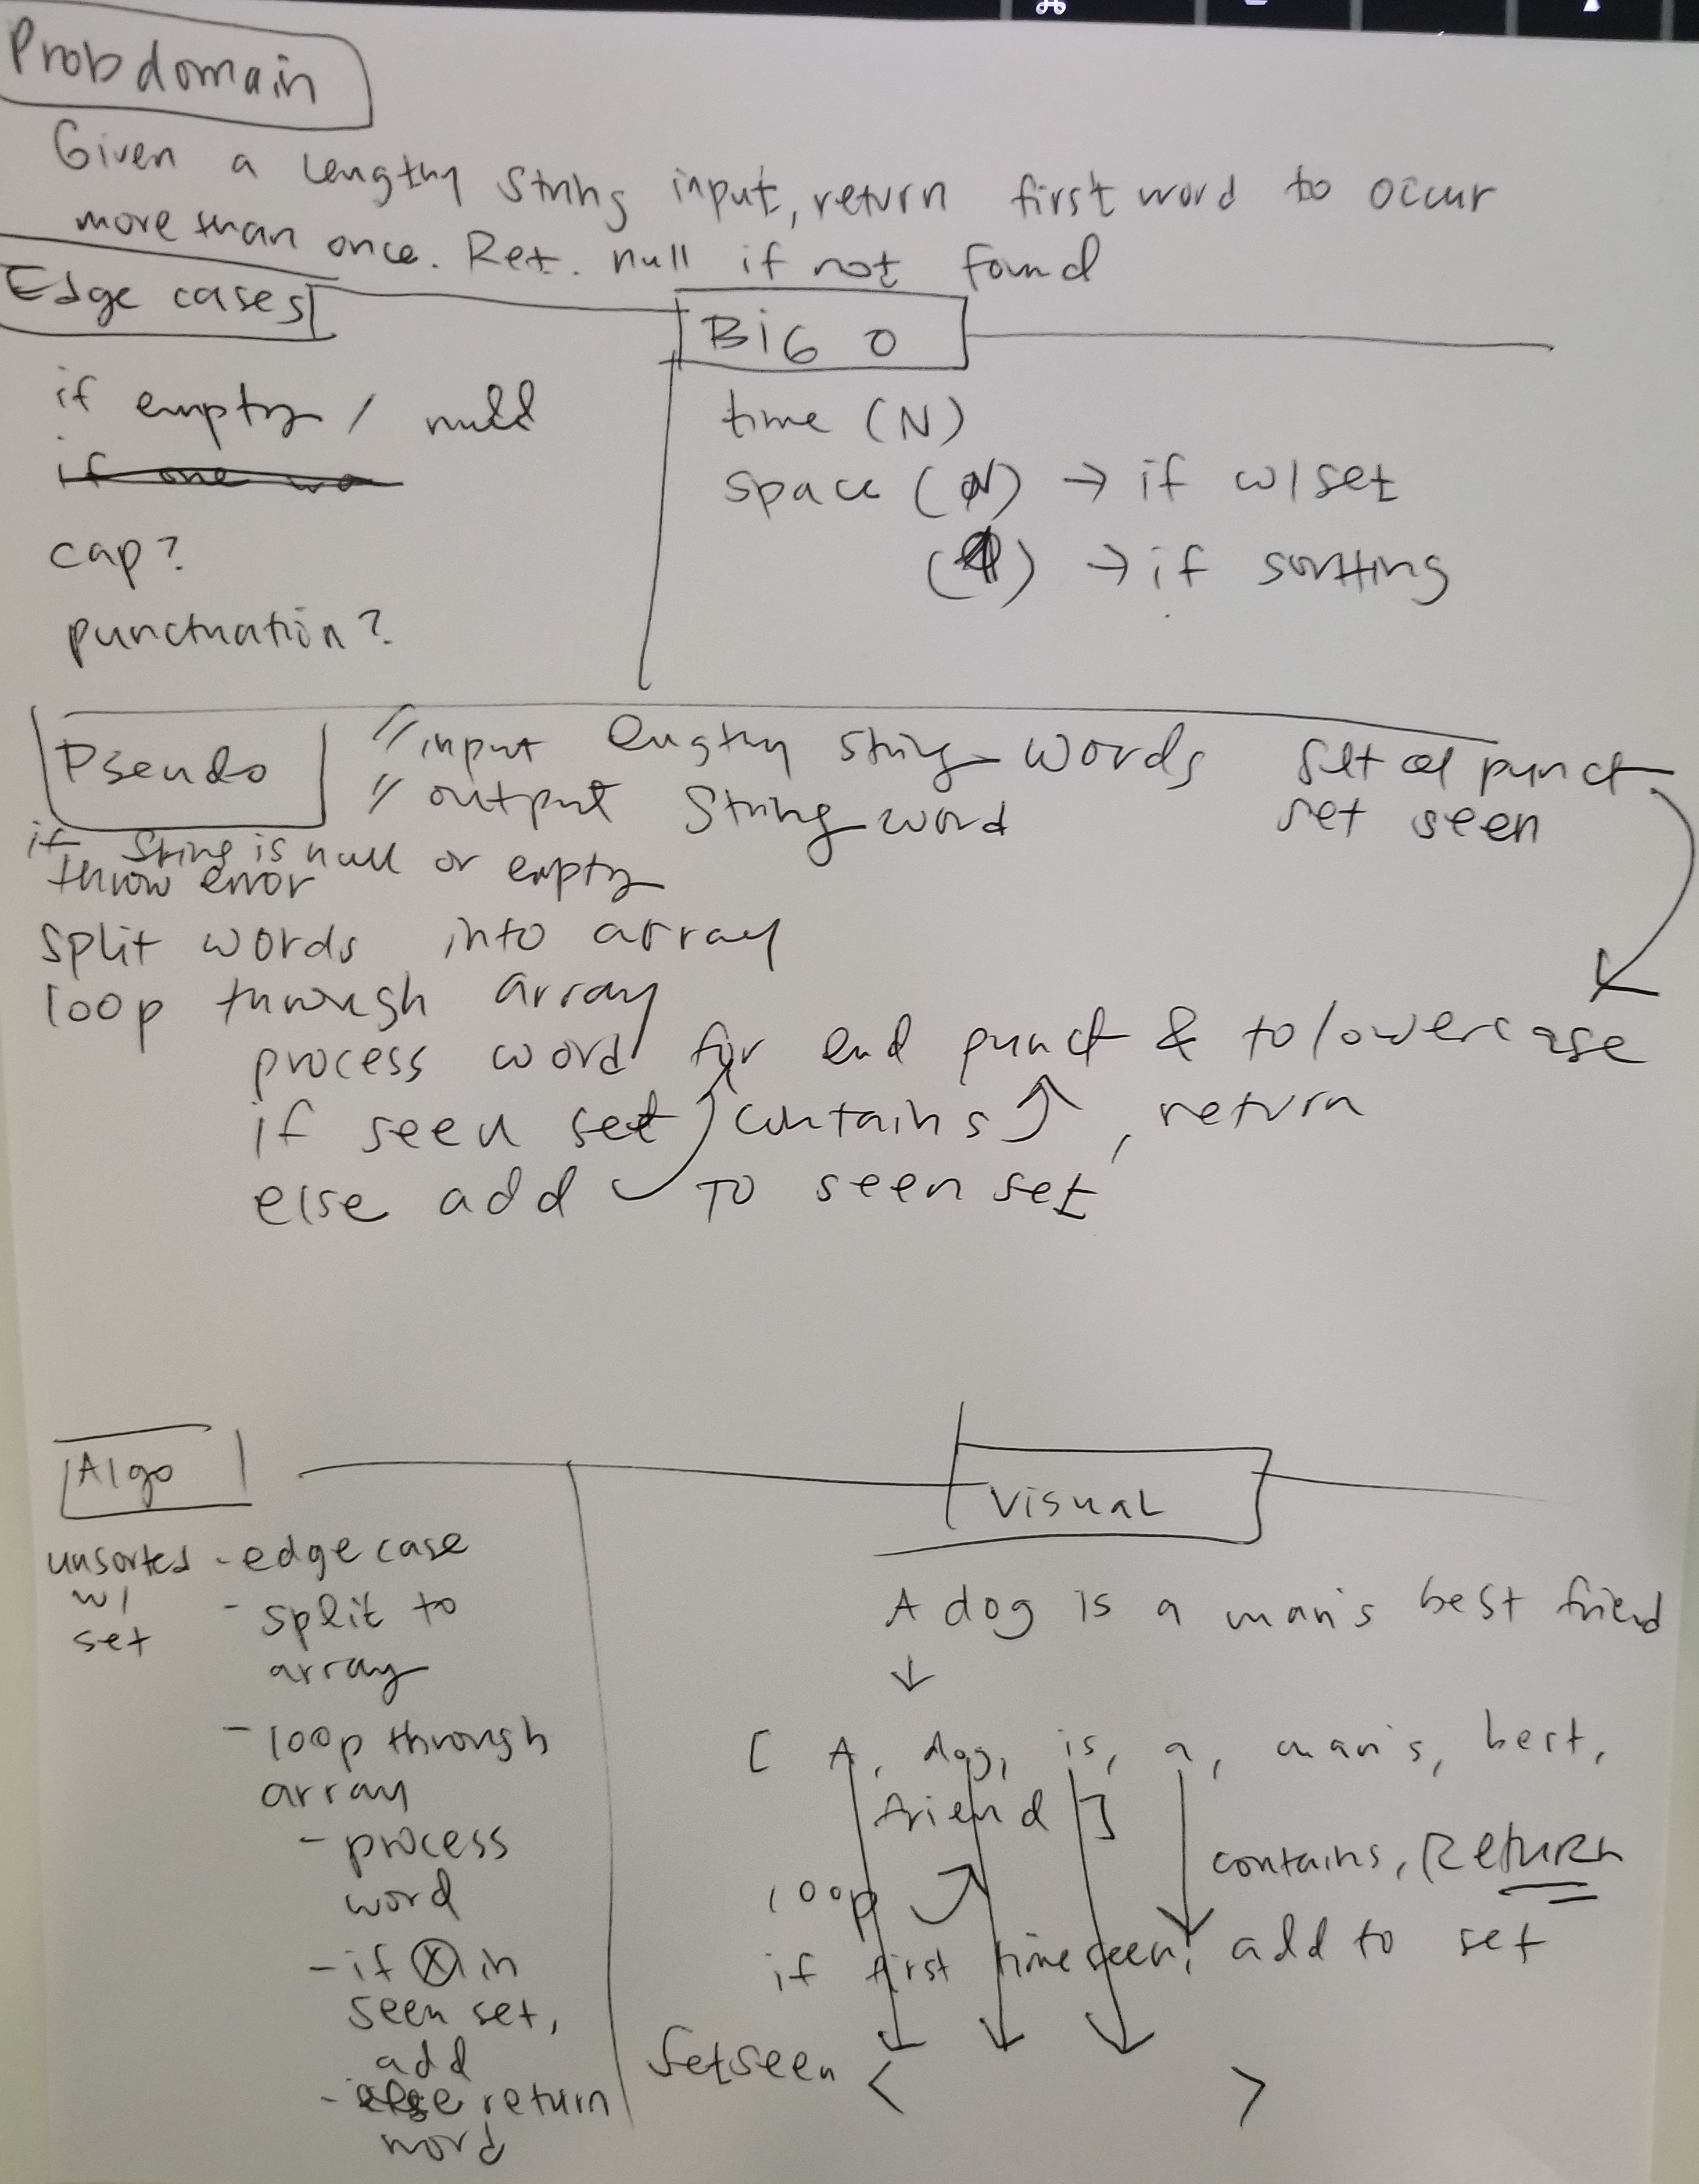 Prob domain
Given a lengthy string input, return first word to occur
more than once. Ret. null if not found
Edge cases
if empty / null
if one wo
cap?
punctuation?
Big O
time (N)
space (N) → if w/ set
( ) → if sorting
Pseudo
// input lengthy string words
// output string word
set of punct
set seen
if string is null or empty
throw error
split words into array
loop through array
process word for end punct & to lowercase
if seen set contains , return
else add to seen set
Algo
unsorted
w/
set
- edge case
- split to
array
- loop through
array
- process
word
- if in
seen set,
add
- else return
word
Visual
A dog is a man's best friend
↓
[ A, dog, is, a, man's, best,
friend ]
contains, Return
loop
if first time seen, add to set
Set seen < >